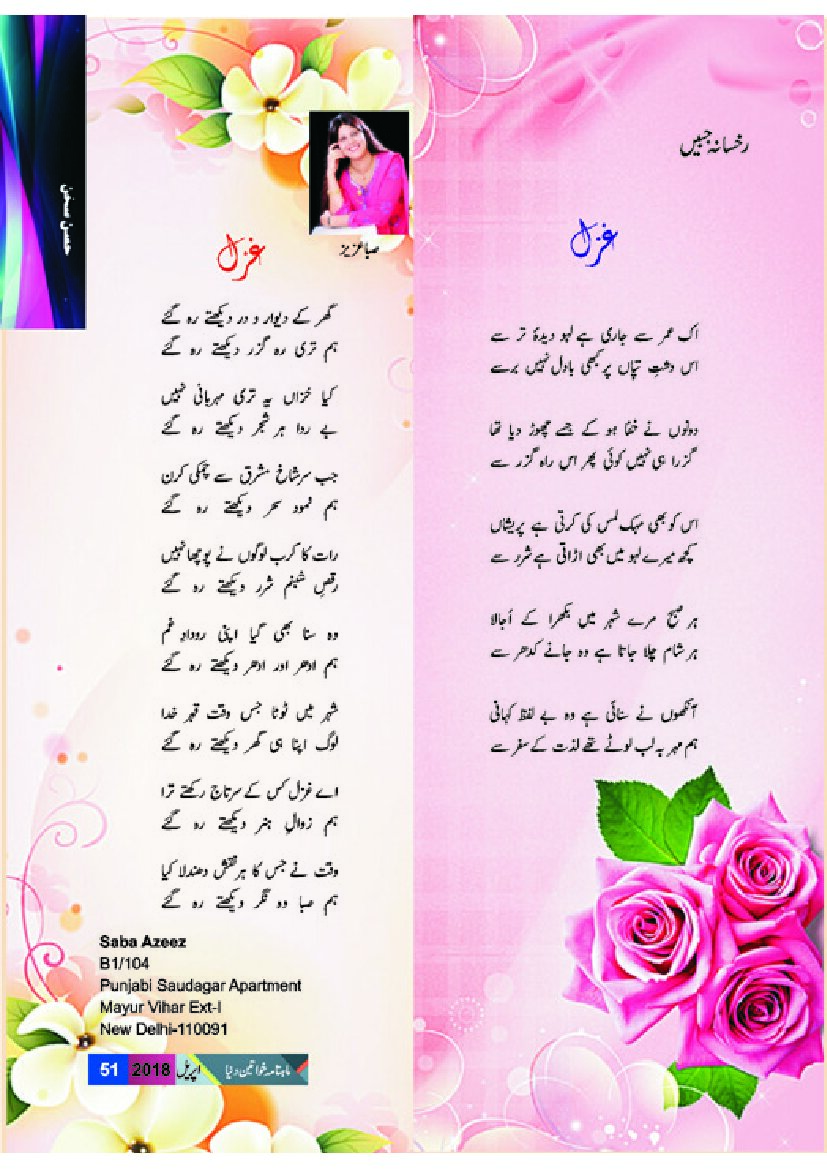 رخسانہ جبیں
غزل
اک عمر سے جاری ہے لہو دیدۂ تر سے
اس دشتِ تپاں پر کبھی بادل نہیں برسے
دونوں نے خفا ہو کے جسے چھوڑ دیا تھا
گزرا ہی نہیں کوئی پھر اس راہ گزر سے
اس کو بھی مہک لمس کی کرتی ہے پریشاں
کچھ میرے لہو میں بھی اڑاتی ہے شرر سے
ہر صبح مرے شہر میں بکھرا کے اُجالا
ہر شام چلا جاتا ہے وہ جانے کدھر سے
آنکھوں نے سنائی ہے وہ بے لفظ کہانی
ہم مہر بہ لب لوٹے تھے لذت کے سفر سے
حسن سخن
صبا عزیز
غزل
گھر کے دیوار و در دیکھتے رہ گئے
ہم تری رہ گزر دیکھتے رہ گئے
کیا خزاں یہ تری مہربانی نہیں
بے ردا ہر شجر دیکھتے رہ گئے
جب سرشاخ مشرق سے چمکی کرن
ہم نمود سحر دیکھتے رہ گئے
رات کا کرب لوگوں نے پوچھا نہیں
رقصِ شبنم شرر دیکھتے رہ گئے
وہ سنا بھی گیا اپنی رودادِ غم
ہم ادھر اور ادھر دیکھتے رہ گئے
شہر میں ٹوٹا جس وقت قہر خدا
لوگ اپنا ہی گھر دیکھتے رہ گئے
اے غزل کس کے سرتاج رکھتے ترا
ہم زوالِ ہنر دیکھتے رہ گئے
وقت نے جس کا ہر نقش دھندلا کیا
ہم صبا وہ نگر دیکھتے رہ گئے
Saba Azeez
B1/104
Punjabi Saudagar Apartment
Mayur Vihar Ext-I
New Delhi-110091
ماہنامہ خواتین دنیا اپریل 2018 51